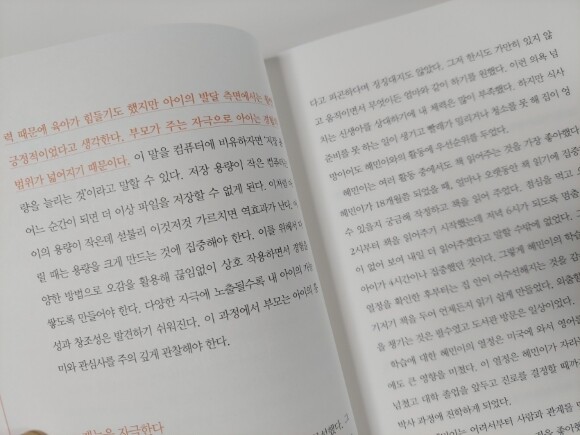 력 때문에 육아가 힘들기도 했지만 아이의 발달 측면에서는
긍정적이었다고 생각한다. 부모가 주는 자극으로 아이는 경험의
범위가 넓어지기 때문이다. 이 말을 컴퓨터에 비유하자면 '저장 용
량을 늘리는 것'이라고 말할 수 있다. 저장 용량이 작은 컴퓨터는
어느 순간이 되면 더 이상 파일을 저장할 수 없게 된다. 이처럼
이의 용량이 작은데 섣불리 이것저것 가르치면 역효과가 난다.
릴 때는 용량을 크게 만드는 것에 집중해야 한다. 이를 위해서
양한 방법으로 오감을 활용해 끊임없이 상호 작용하면서 경험을
쌓도록 만들어야 한다. 다양한 자극에 노출될수록 내 아이의
성과 창조성은 발견하기 쉬워진다. 이 과정에서 부모는 아이의
미와 관심사를 주의 깊게 관찰해야 한다.
자극한다
다고 피곤하다며 칭얼대지도 않았다. 그저 한시도 가만히 있지 않
고 움직이면서 무엇이든 엄마와 같이 하기를 원했다. 이런 의욕 넘
치는 신생아를 상대하기에 내 체력은 많이 부족했다. 하지만 식사
준비를 못 하는 일이 생기고 빨래가 밀리거나 청소를 못 해 집이 엉
망이어도 혜민이와의 활동에 우선순위를 두었다.
혜민이는 여러 활동 중에서도 책 읽어주는 것을 가장 좋아했다.
혜민이가 18개월쯤 되었을 때, 얼마나 오랫동안 책 읽기에 집중
수 있을지 궁금해 작정하고 책을 읽어 주었다. 점심을 먹고 오
2시부터 책을 읽어주기 시작했는데 저녁 6시가 되도록
이 없어 보여 내일 더 읽어주겠다고 말할 수밖에 없었다.
아이가 4시간이나 집중했던 것이다. 그렇게 혜민이의 학습
열정을 확인한 후부터는 집 안이 어수선해지는 것을 감
가지가 책을 두어 언제든지 읽기 쉽게 만들었다. 외출
을 챙기는 것은 필수였고 도서관 방문은 일상이었다.
학습에 대한 혜민이의 열정은 미국에 와서 영어
에도 큰 영향을 미쳤다. 이 열정은 혜민이가 자라
넘쳤고 대학 졸업을 앞두고 진로를 결정할 때까
박사 과정에 진학하게 되었다.
혜민이는 어려서부터 사람과 관계를